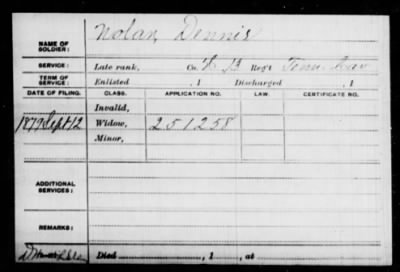 Nolan, Dennis
NAME OF SOLDIER:
SERVICE: Late rank, Co. Reg't Tenn Cav
TERM OF SERVICE: Enlisted , 1 Discharged , 1
DATE OF FILING. CLASS. APPLICATION NO. LAW. CERTIFICATE NO.
Invalid,
1879 Sept 12 Widow, 251258
Minor,
ADDITIONAL SERVICES:
REMARKS:
Died , 1 , at